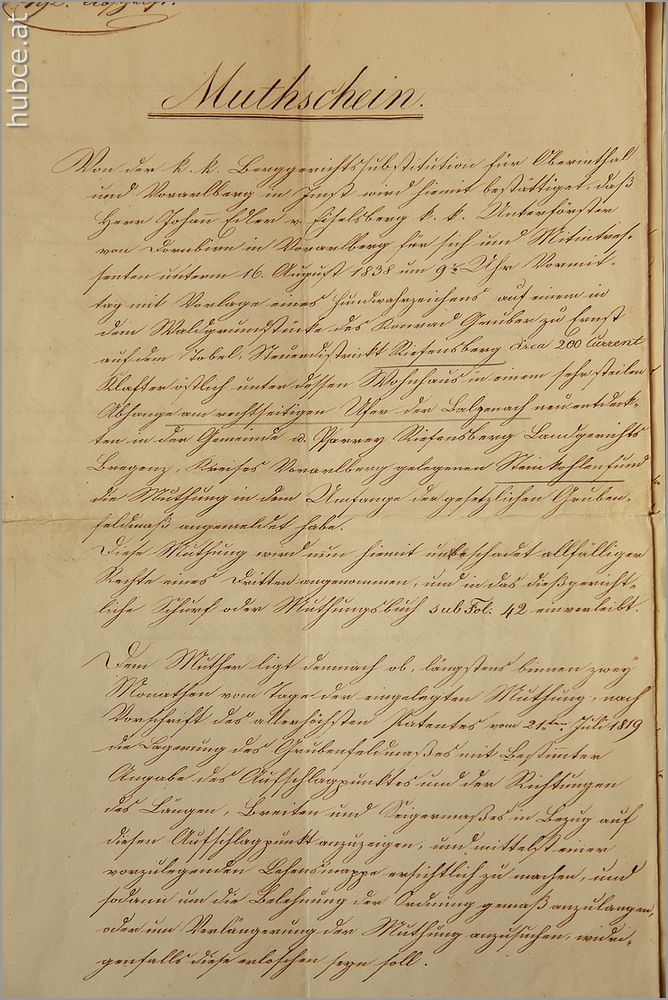 hubce.at
Muthschein.
Von der k. k. Berggerichtssubstitution für Oberinthal
und Vorarlberg in Imst wird hiemit bestättiget, daß
Herr Johañ Edler v. Eichelsberg k. k. Unterförster
von Dornbirn in Vorarlberg für sich und Mitintres-
senten unterm 16. August 1838 um 9 Uhr Vormit-
tag mit Vorlage eines Fundwahrzeichens auf einem in
dem Waldgrundstücke des Konrad Gruber zu Ernst
auf dem Tobel, Steuerdistrickt Riefensberg circa 200 Current
Klafter östlich unter dessen Wohnhaus in einem sehr steilen
Abhange am rechtseitigen Ufer der Bolgenach neu entdeck-
ten in der Gemeinde u. Pfarrey Riefensberg Landgerichts
Bregenz, Kreises Vorarlberg gelegenen Steinkohlenfund
die Muthung in dem Umfange der gesetzlichen Gruben-
feldmaß angemeldet habe.
Diese Muthung wird nun hiemit unbeschadet allfälliger
Rechte eines Dritten angenommen, und in das dießgericht-
liche Schurf oder Muthungsbuch sub Fol: 42 einverleibt.
Dem Muther ligt demnach ob, längstens binnen zwey
Monathen vom Tage der eingelegten Muthung, nach
Vorschrift des allerhöchsten Patentes vom 21ten Juli 1819
die Lagerung des Grubenfeldmaßes mit Bestim̃ter
Angabe des Aufschlagpunktes und der Richtungen
des Längen, Breiten und Seigermaßes in Bezug auf
diesen Aufschlagpunkt anzuzeigen, und mittelst einer
vorzulegenden Lehensmappe ersichtlich zu machen, und
sodann um die Belehnung der Ordnung gemäß anzulangen,
oder um Verlängerung der Muthung anzusuchen, widri-
genfalls diese erloschen seyn soll.